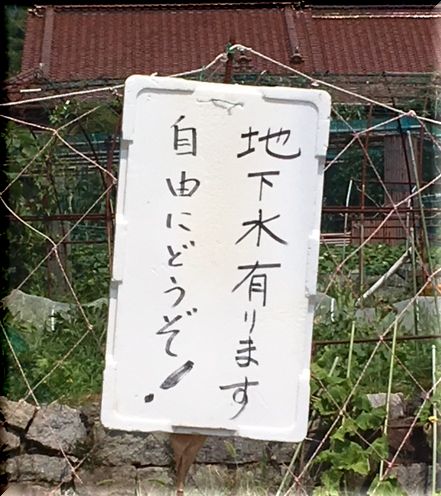 地下水有ります
自由にどうぞ!